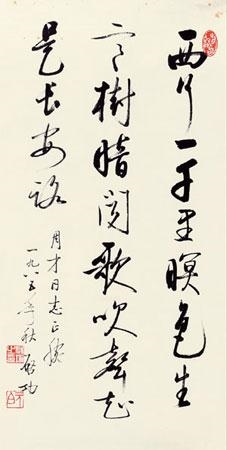 西行一千里暝色生
寒樹暗聞歌吹聲知
是長安路
月才同志正腕
一九六五年秋 啓功